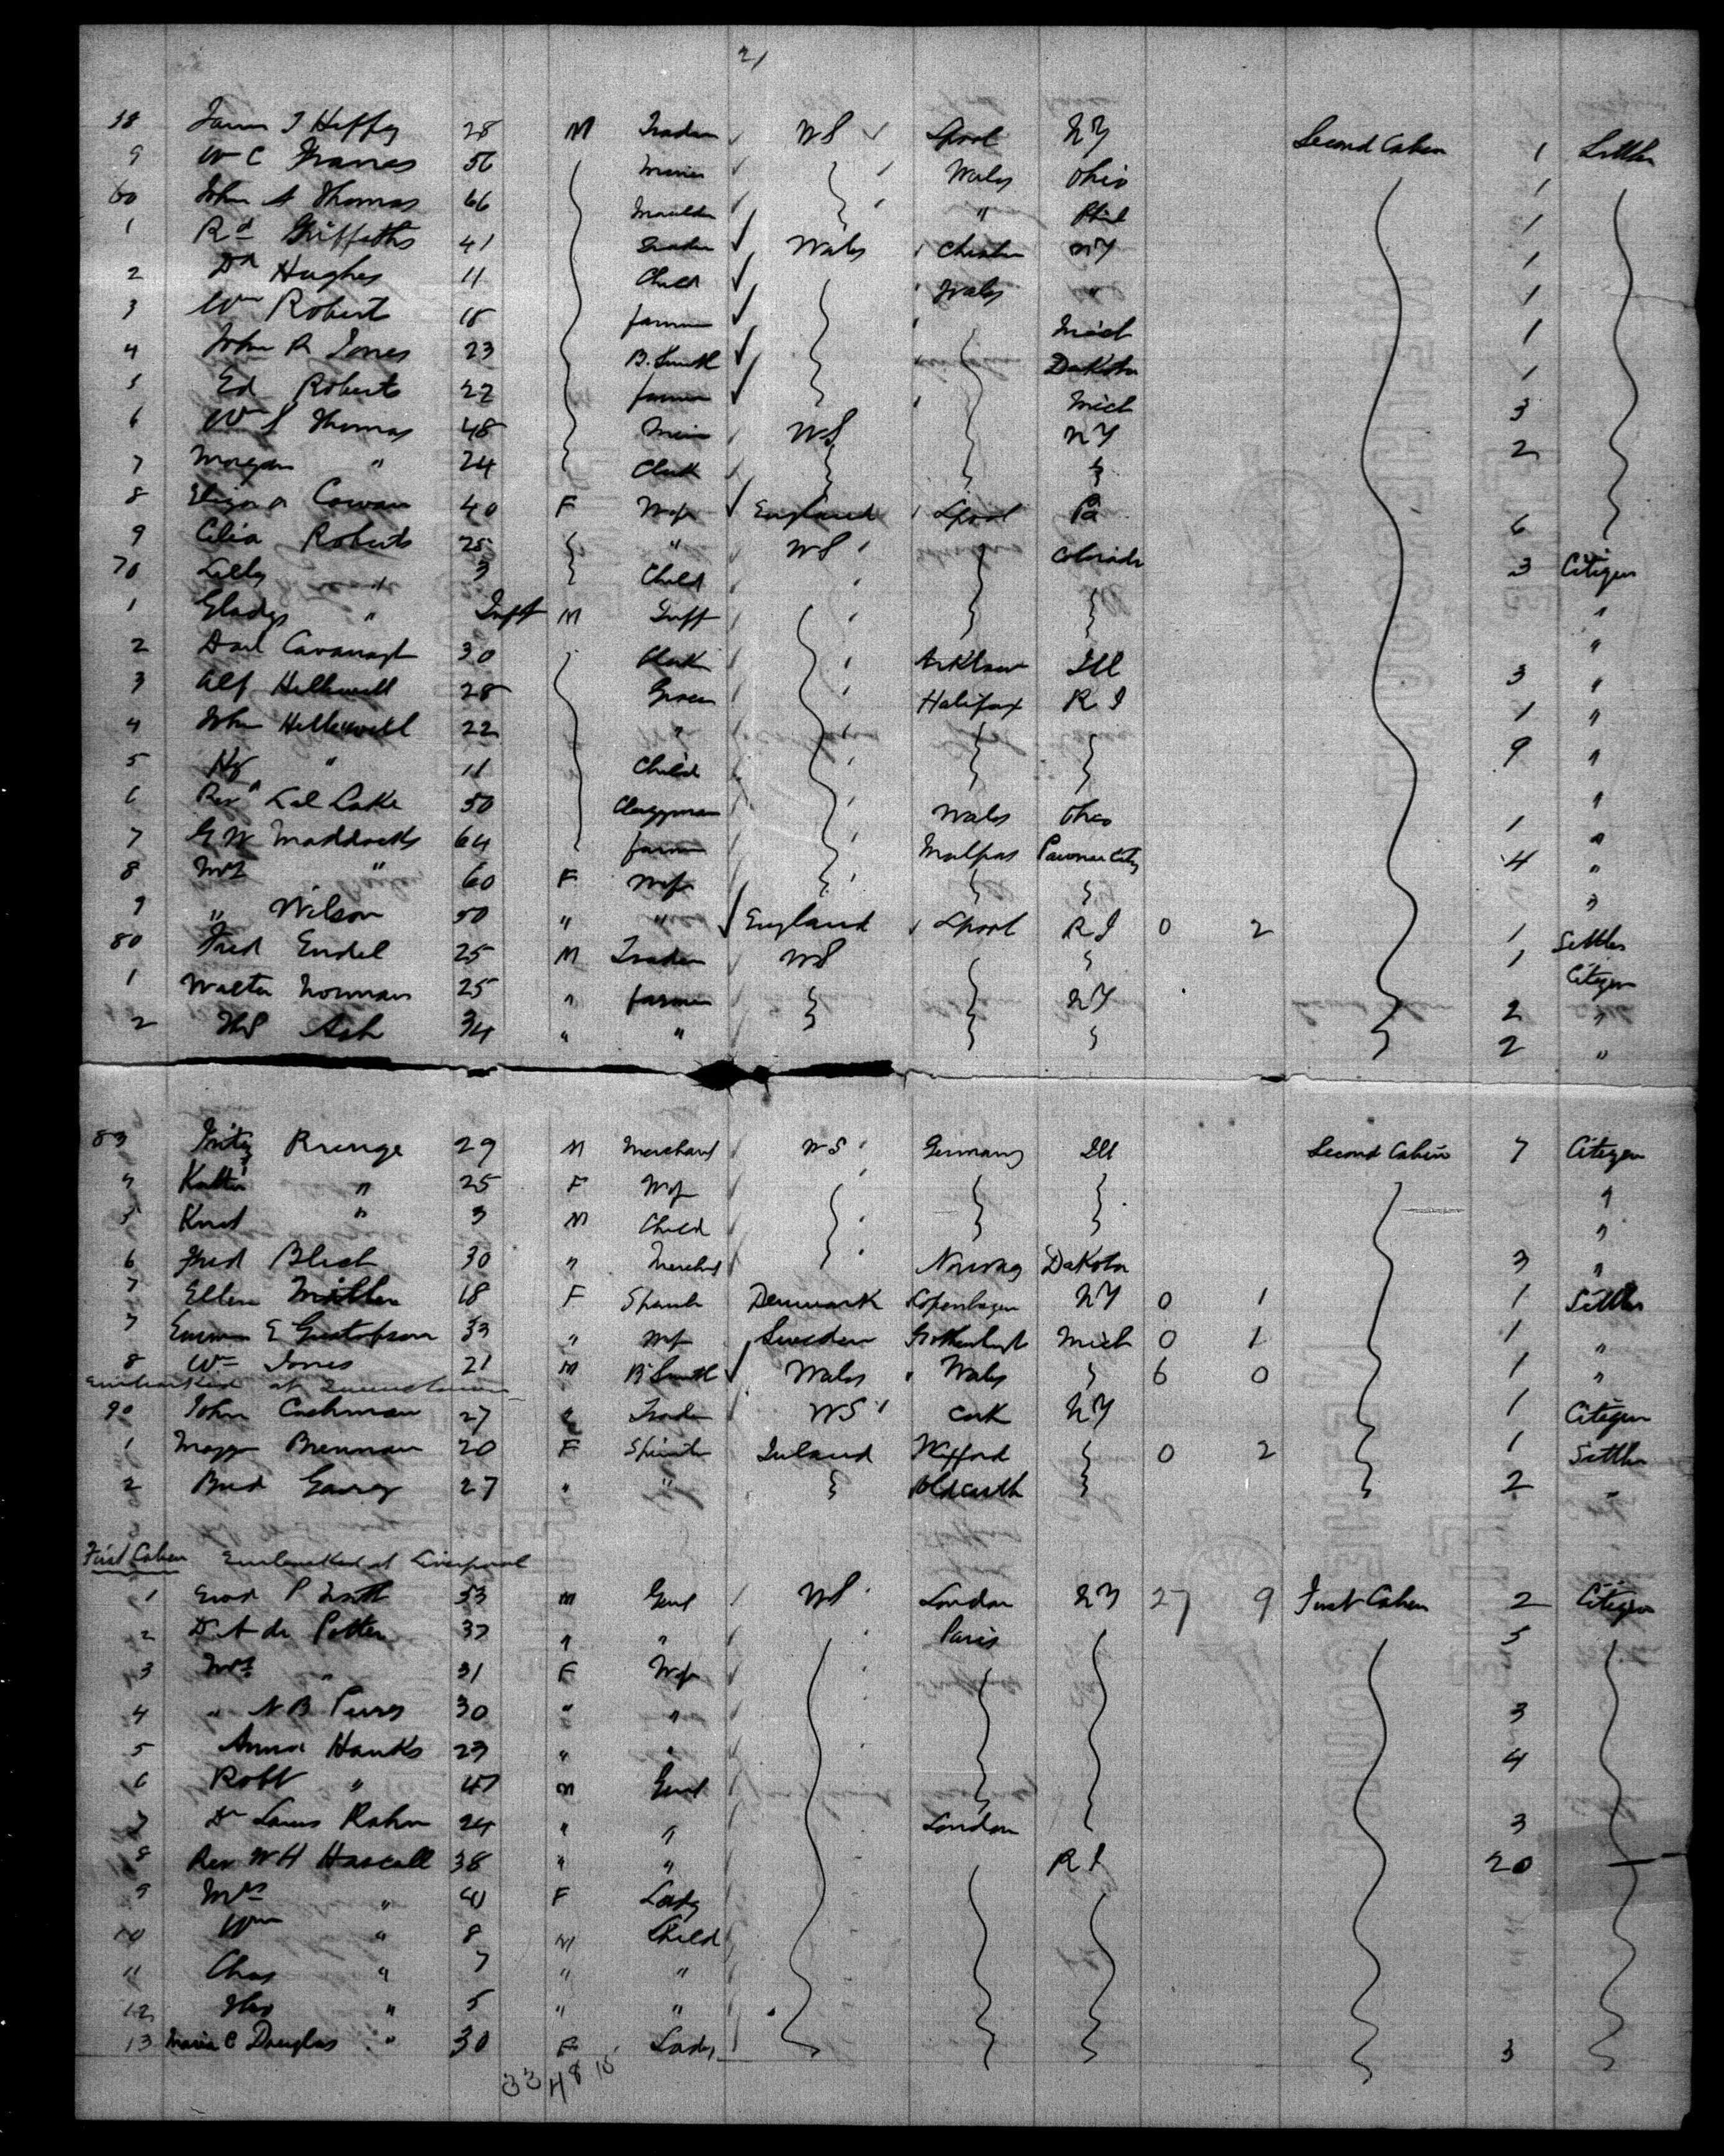 21
58 James J Heffey 28 M Trader WS Lpool NY Second Cabin 1 Settler
9 W C Francis 56 Miner Wales Ohio 1
60 John A Thomas 66 Moulder " Phil 1
1 Rd Griffiths 41 Trader Wales Chester NY 1
2 Dd Hughes 11 Child Wales " 1
3 Wm Robert 18 farmer Mich 1
4 John R Jones 23 B. Smith Dakota 1
5 Ed Roberts 22 farmer Mich 3
6 Wm S Thomas 48 WS NY 2
7 Morgan " 24 Clerk
8 Cowan 40 F Wife England Lpool Pa 6
9 Celia Roberts 25 " WS Colorado 3 Citizen
70 Lilly " 3 Child "
1 Gladys " Inft M Inff "
2 Danl Cavanagh 30 Clerk Arklow Ill 3 "
3 Alf Helliwell 28 Grocer Halifax R I 1 "
4 John Helliwell 22 " 9 "
5 Hy " 11 Child "
6 Revd Lake 50 Clergyman Wales Ohio 1 "
7 G W Maddocks 64 farmer Malpas Pawnee City 4 "
8 Mrs " 60 F Wife "
9 " Wilson 50 " " England Lpool R I 0 2 1 Settler
80 Fred Endel 25 M Trader WS 1 Citizen
1 Walter Norman 25 " farmer NY 2 "
2 Ash 34 " " 2 "
83 Fritz Runge 29 M Merchant WS Germany Ill Second Cabin 7 Citizen
4 " 25 F Wife "
5 Knud " 3 M Child "
6 Fred 30 " Merchant Norway Dakota 3 "
7 Ellen Miller 18 F Denmark Kopenhagen NY 0 1 1 Settler
7 Emma E Gustafson 33 " Wife Sweden Mich 0 1 1 "
8 Wm Jones 21 M B Smith Wales Wales 6 0 1 "
Embarked at Queenstown
90 John Cashman 27 " Trader WS Cork NY 1 Citizen
1 Maggie Brennan 20 F Spinster Ireland Wexford 0 2 1 Settler
2 Brid 27 " " Oldcastle 2 "
First Cabin Embarked at Liverpool
1 P Smith 53 M Gent WS London NY 27 9 First Cabin 2 Citizen
2 Dr A de Potter 37 " " Paris 5
3 Mrs " 31 F Wife
4 " N B 30 " " 3
5 Anna Hanks 23 " " 4
6 Robt " 47 M Gent
7 Dr Louis Rahn 24 " " London 3
8 Rev W H Hascall 38 " " R I 20
9 Mrs " 40 F Lady
10 Wm " 8 M Child
11 Chas " 7 " "
12 " 5 " "
13 Maria C Douglas " 30 F Lady 3
33 48 15